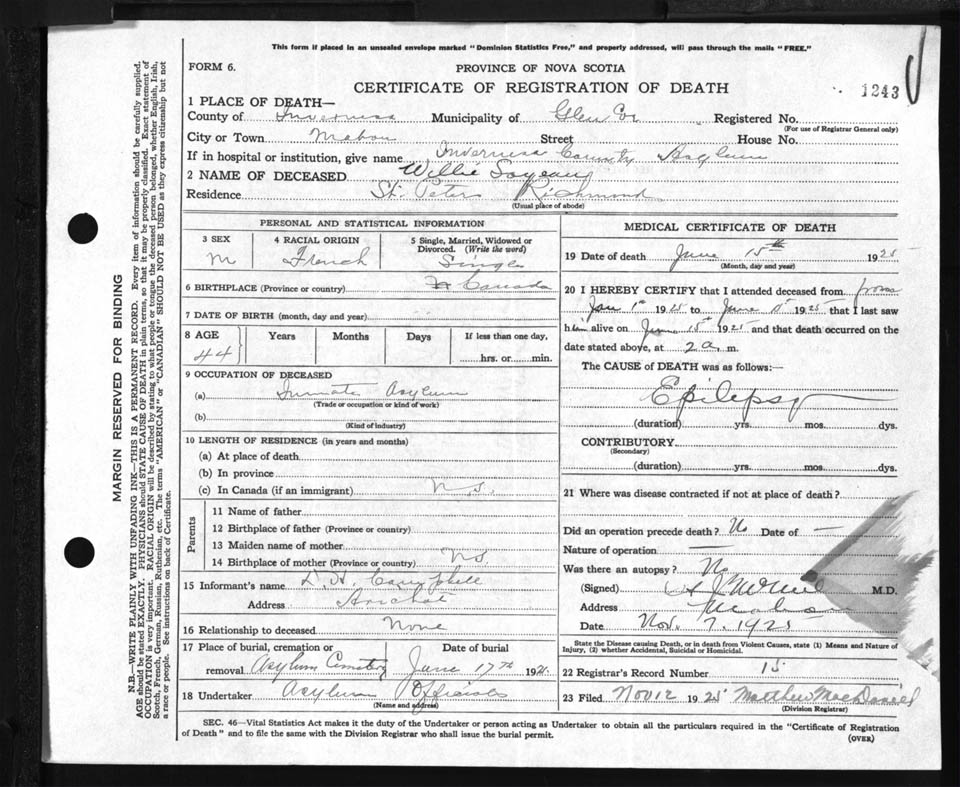 This form if placed in an unsealed envelope marked "Dominion Statistics Free," and properly addressed, will pass through the mails "FREE."
FORM 6.
PROVINCE OF NOVA SCOTIA
CERTIFICATE OF REGISTRATION OF DEATH
1243
1 PLACE OF DEATH—
County of Inverness Municipality of Registered No.
(For use of Registrar General only)
City or Town Mabou Street House No.
If in hospital or institution, give name Inverness County Asylum
2 NAME OF DECEASED Willie
Residence St. Peters Richmond
(Usual place of abode)
PERSONAL AND STATISTICAL INFORMATION
3 SEX
M
4 RACIAL ORIGIN
French
5 Single, Married, Widowed or Divorced. (Write the word)
Single
6 BIRTHPLACE (Province or country) Canada
7 DATE OF BIRTH (month, day and year)
8 AGE Years Months Days If less than one day,
44 hrs. or min.
9 OCCUPATION OF DECEASED
(a) Inmate Asylum
(Trade or occupation or kind of work)
(b)
(Kind of industry)
10 LENGTH OF RESIDENCE (in years and months)
(a) At place of death
(b) In province
(c) In Canada (if an immigrant) N.S.
Parents
11 Name of father
12 Birthplace of father (Province or country)
13 Maiden name of mother
14 Birthplace of mother (Province or country) N.S.
15 Informant's name D. A. Campbell
Address Arichat
16 Relationship to deceased None
17 Place of burial, cremation or Date of burial
removal Asylum Cemetery June 17th 192
18 Undertaker Asylum Officials
(Name and address)
MEDICAL CERTIFICATE OF DEATH
19 Date of death June 15th 1925
(Month, day and year)
20 I HEREBY CERTIFY that I attended deceased from from
Jan 1st 1925 to June 1925 that I last saw
him alive on June 15th 1925 and that death occurred on the
date stated above, at 2 a. m.
The CAUSE of DEATH was as follows:—
Epilepsy
(duration) yrs. mos. dys.
CONTRIBUTORY
(Secondary)
(duration) yrs. mos. dys.
21 Where was disease contracted if not at place of death?
Did an operation precede death? No Date of —
Nature of operation —
Was there an autopsy? No
(Signed) M.D.
Address Mabou
Date Nov. 7. 1925
State the Disease causing Death, or in death from Violent Causes, state (1) Means and Nature of Injury, (2) whether Accidental, Suicidal or Homicidal.
22 Registrar's Record Number 15
23 Filed Nov 12 1925 Matthew MacDaniel
(Division Registrar)
SEC. 46—Vital Statistics Act makes it the duty of the Undertaker or person acting as Undertaker to obtain all the particulars required in the "Certificate of Registration
of Death" and to file the same with the Division Registrar who shall issue the burial permit.
(OVER)
MARGIN RESERVED FOR BINDING
N.B.—WRITE PLAINLY WITH UNFADING INK—THIS IS A PERMANENT RECORD. Every item of information should be carefully supplied.
AGE should be stated EXACTLY. PHYSICIANS should STATE CAUSE OF DEATH in plain terms, so that it may be properly classified. Exact statement of
OCCUPATION is very important. RACIAL ORIGIN will be described by stating to what people or tongue the deceased person belonged, whether English, Irish,
Scotch, French, German, Russian, Ruthenian, etc. The terms "AMERICAN" or "CANADIAN" SHOULD NOT BE USED as they express citizenship but not
a race or people. See instructions on back of Certificate.